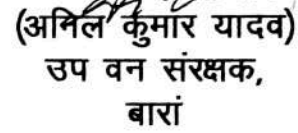 (अनिल कुमार यादव)
उप वन संरक्षक,
बारां